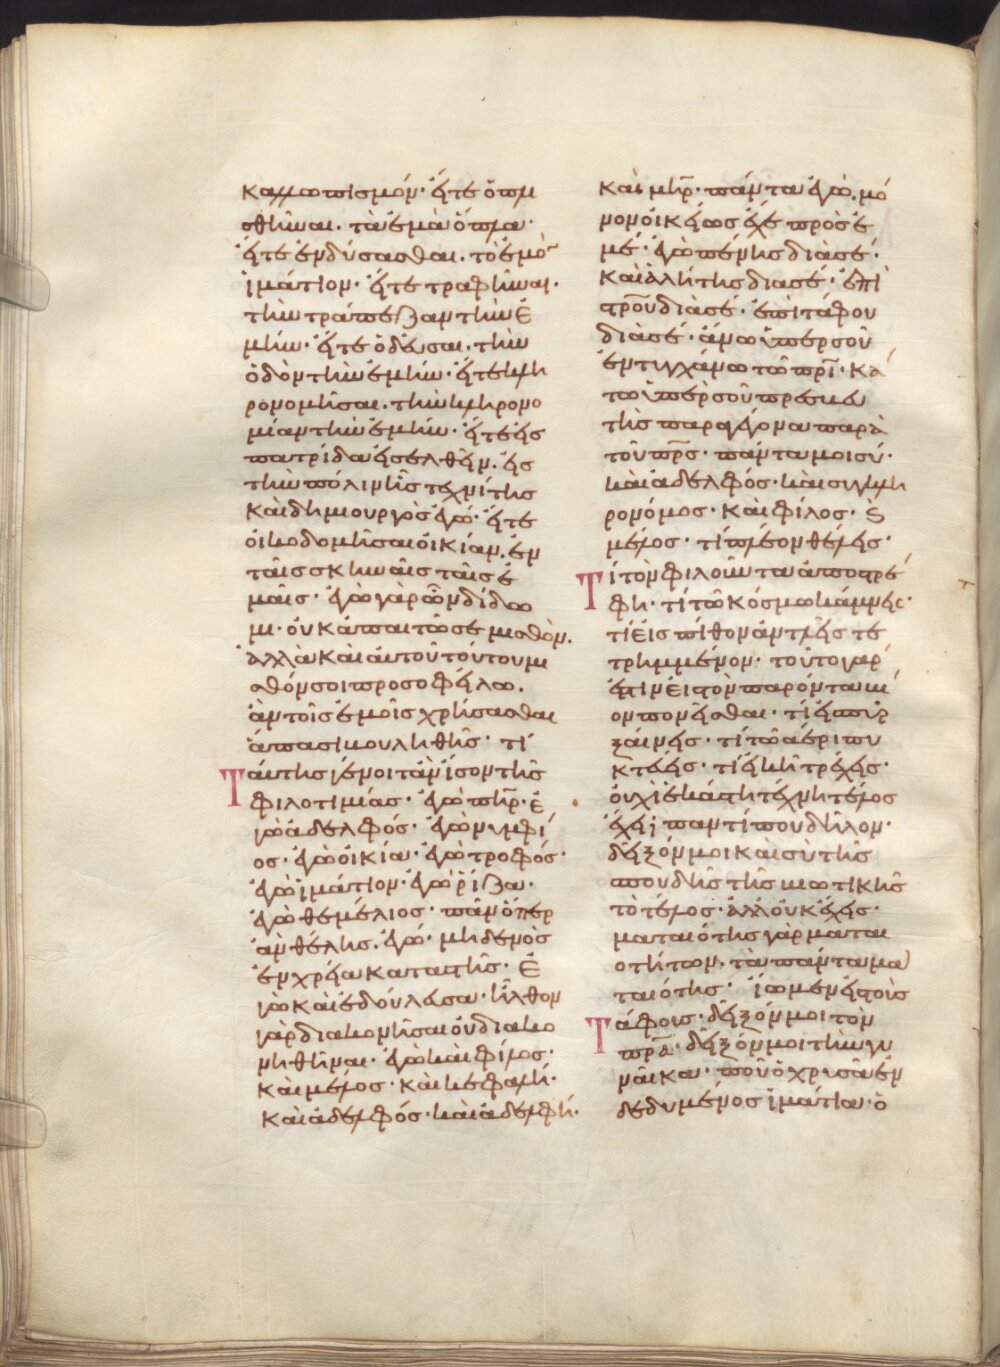 καλλωπισμόν· εἴτε ὁπλι
σθῆναι· τὰ ἐμὰ ὅπλα·
εἴτε ἐνδύσασθαι· τὸ ἐμὸ̅
ἱμάτιον· εἴτε τραφῆναι·
τὴν τράπεζαν τὴν ἐ
μήν· εἴτε ὁδεῦσαι· τὴν
ὁδὸν τὴν ἐμήν· εἴτε κλη
ρονομῆσαι· τὴν κληρονο
μίαν τὴν ἐμήν· εἴτε εἰς
πατρίδα εἰσελθεῖν· εἰς
τὴν πόλιν ἧς τεχνίτης
καὶ δημιουργὸς ἐγώ· εἴτε
οἰκοδομῆσαι οἰκίαν· ἐν
ταῖς σκηναῖς ταῖς ἐ
μαῖς· ἐγὼ γὰρ ὧν δίδω
μι· οὐκ ἀπαιτῶ σε μισθόν·
ἀλλὰ καὶ αὐτοῦ τούτου μι
σθόν σοι προσοφείλω·
ἂν τοῖς ἐμοῖς χρήσασθαι
ἅπασι βουληθῆς· τί
ταύτης γένοιτ' ἂν ἴσον τῆς
φιλοτιμίας· ἐγὼ πη̅ρ· ἐ
γὼ ἀδελφός· ἐγὼ νυμφί
ος· ἐγὼ οἰκία· ἐγὼ τροφός·
ἐγὼ ἱμάτιον· ἐγὼ ῥίζα·
ἐγὼ θεμέλιος· πᾶν ὅπερ
ἂν θέλης· ἐγώ· μηδενὸς
ἐν χρεία καταστῆς· ἐ
γὼ καὶ ἐδούλευσα· ἦλθον
γὰρ διακονῆσαι οὐ διακο
νηθῆναι· ἐγὼ καὶ φίλος·
καὶ μέλος· καὶ κεφαλή·
καὶ ἀδελφός· καὶ ἀδελφή·
καὶ μη̅ρ· πάντα ἐγώ· μό
νον οἰκείως ἔχε πρὸς ἐ
μέ· ἐγὼ πένης διὰ σέ·
καὶ ἀλήτης διὰ σέ· ἐπὶ
στρο̅υ διὰ σέ· ἐπὶ τάφου
διὰ σέ· ἄνω ὑπὲρ σοῦ
ἐντυγχάνω τῶ πρ̅ι· κά
τω ὑπὲρ σοῦ πρεσβευ
τὴς παραγέγονα παρὰ
τοῦ πρ̅ς· πάντα μοι σύ·
καὶ ἀδελφός· καὶ συγκλη
ρονόμος· καὶ φίλος· ϗ
μέλος· τί πλέον θέλεις·
τί τὸν φιλοῦντα ἀποστρέ
φη· τί τῶ κόσμω κάμνεις·
τί εἰς πίθον ἀντλεῖς τε
τρημμένον· τοῦτο γάρ
ἐστιν εἰς τὸν παρόντα βί
ον πονεῖσθαι· τί εἰς πῦρ
ξαίνεις· τί τῶ ἀέρι πυ
κτεύεις· τί εἰκῆ τρέχεις·
οὐχὶ ἑκάστη τέχνη τέλος
ἔχει; παντί που δῆλον·
δεῖξόν μοι καὶ σὺ τῆς
σπουδῆς τῆς βιωτικῆς
τὸ τέλος· ἀλλ' οὐκ ἔχεις·
ματαιότης γὰρ μαται
οτήτων· τὰ πάντα μα
ταιότης· ἴωμεν εἰς τοὺς
τάφους· δεῖξόν μοι τὸν
πρ̅α· δεῖξόν μοι τὴν γυ
ναῖκα· ποῦ ὁ χρυσᾶ ἐν
δεδυμένος ἱμάτια· ὁ